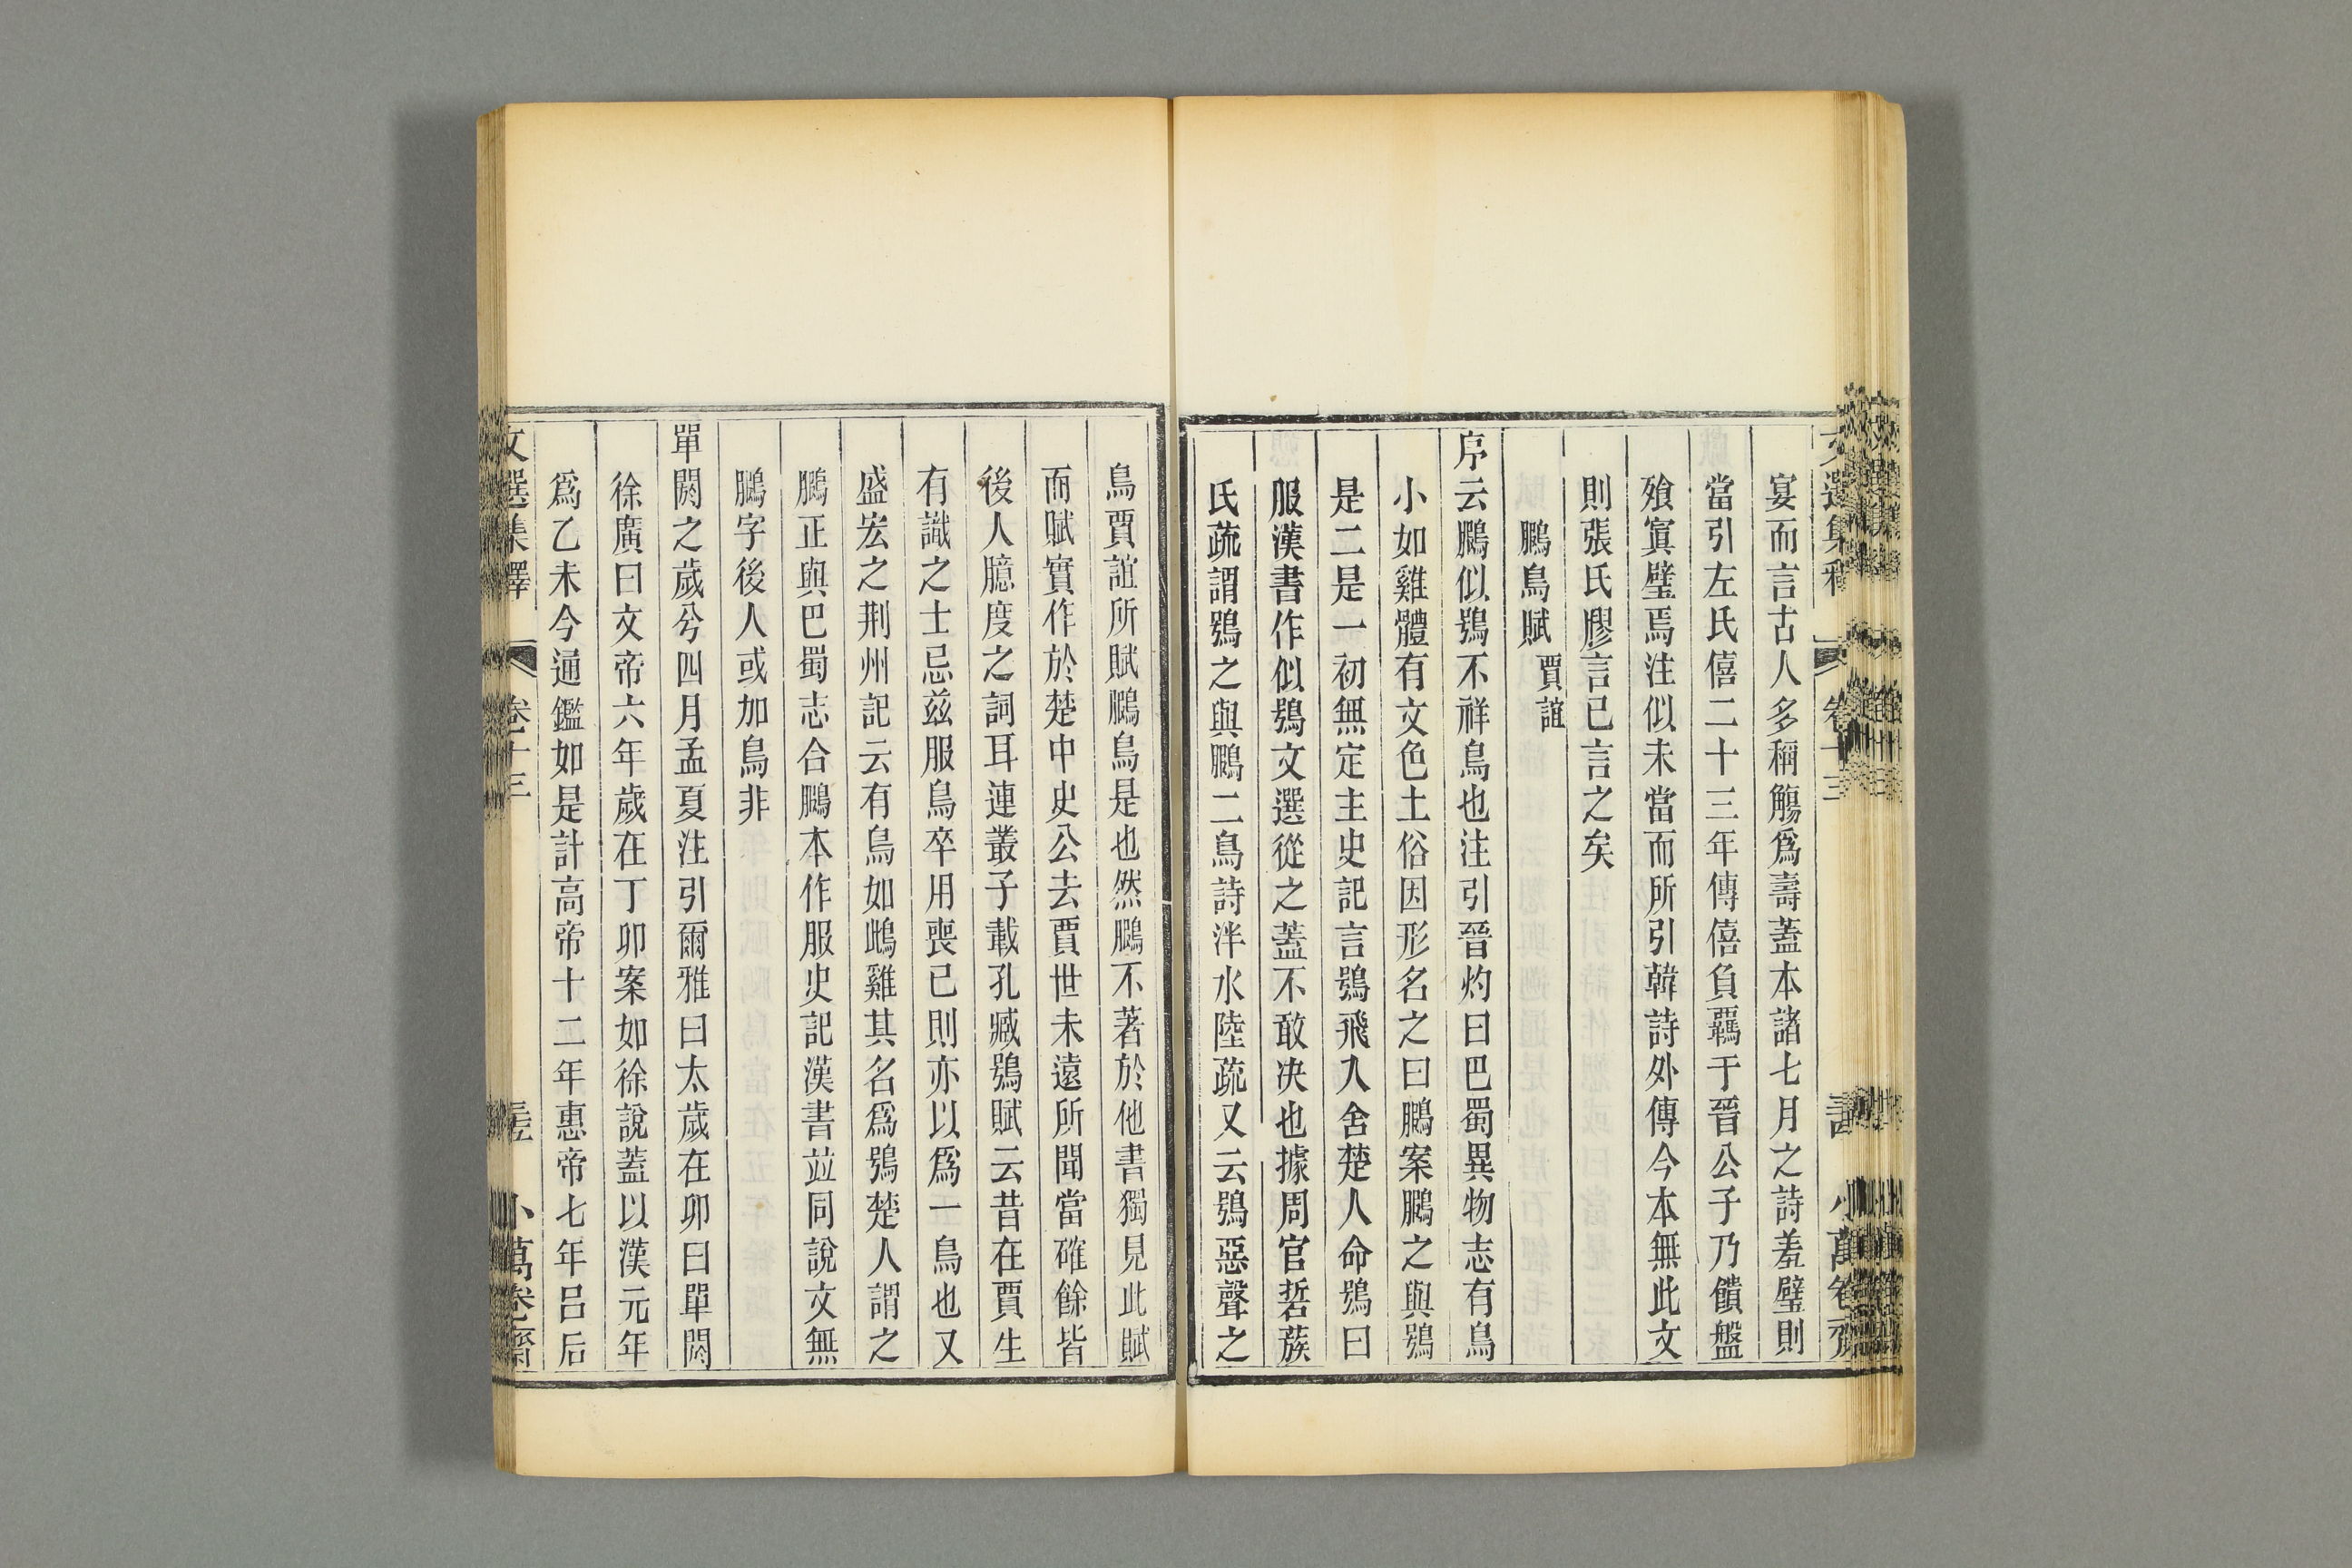 宴而言古人多稱觴爲壽蓋本諸七月之詩羞璧則
當引左氏僖二十三年傳僖負羈于晉公子乃饋盤
飧寘璧焉注似未當而所引韓詩外傳今本無此文
則張氏膠言已言之矣
鵩鳥賦 賈誼
序云鵩似鴞不祥鳥也注引晉灼曰巴蜀異物志有鳥
小如雞體有文色土俗因形名之曰鵩案鵩之與鴞
是二是一初無定主史記言鴞飛入舍楚人命鴞曰
服漢書作似鴞文選從之蓋不敢決也據周官硩蔟
氏疏謂鴞之與鵩二鳥詩泮水陸疏又云鴞惡聲之
鳥賈誼所賦鵩鳥是也然鵩不著於他書獨見此賦
而賦實作於楚中史公去賈世未遠所聞當確餘皆
後人臆度之詞耳連叢子載孔臧鴞賦云昔在賈生
有識之士忌茲服鳥卒用喪已則亦以爲一鳥也又
盛宏之荆州記云有鳥如雌雞其名爲鴞楚人謂之
鵩正與巴蜀志合鵩本作服史記漢書竝同說文無
鵩字後人或加鳥非
單閼之歲兮四月孟夏注引爾雅曰太歲在卯曰單閼
徐廣曰文帝六年歲在丁卯案如徐說蓋以漢元年
爲乙未今通鑑如是計高帝十二年惠帝七年呂后
文選集釋 卷十三 小萬卷齋